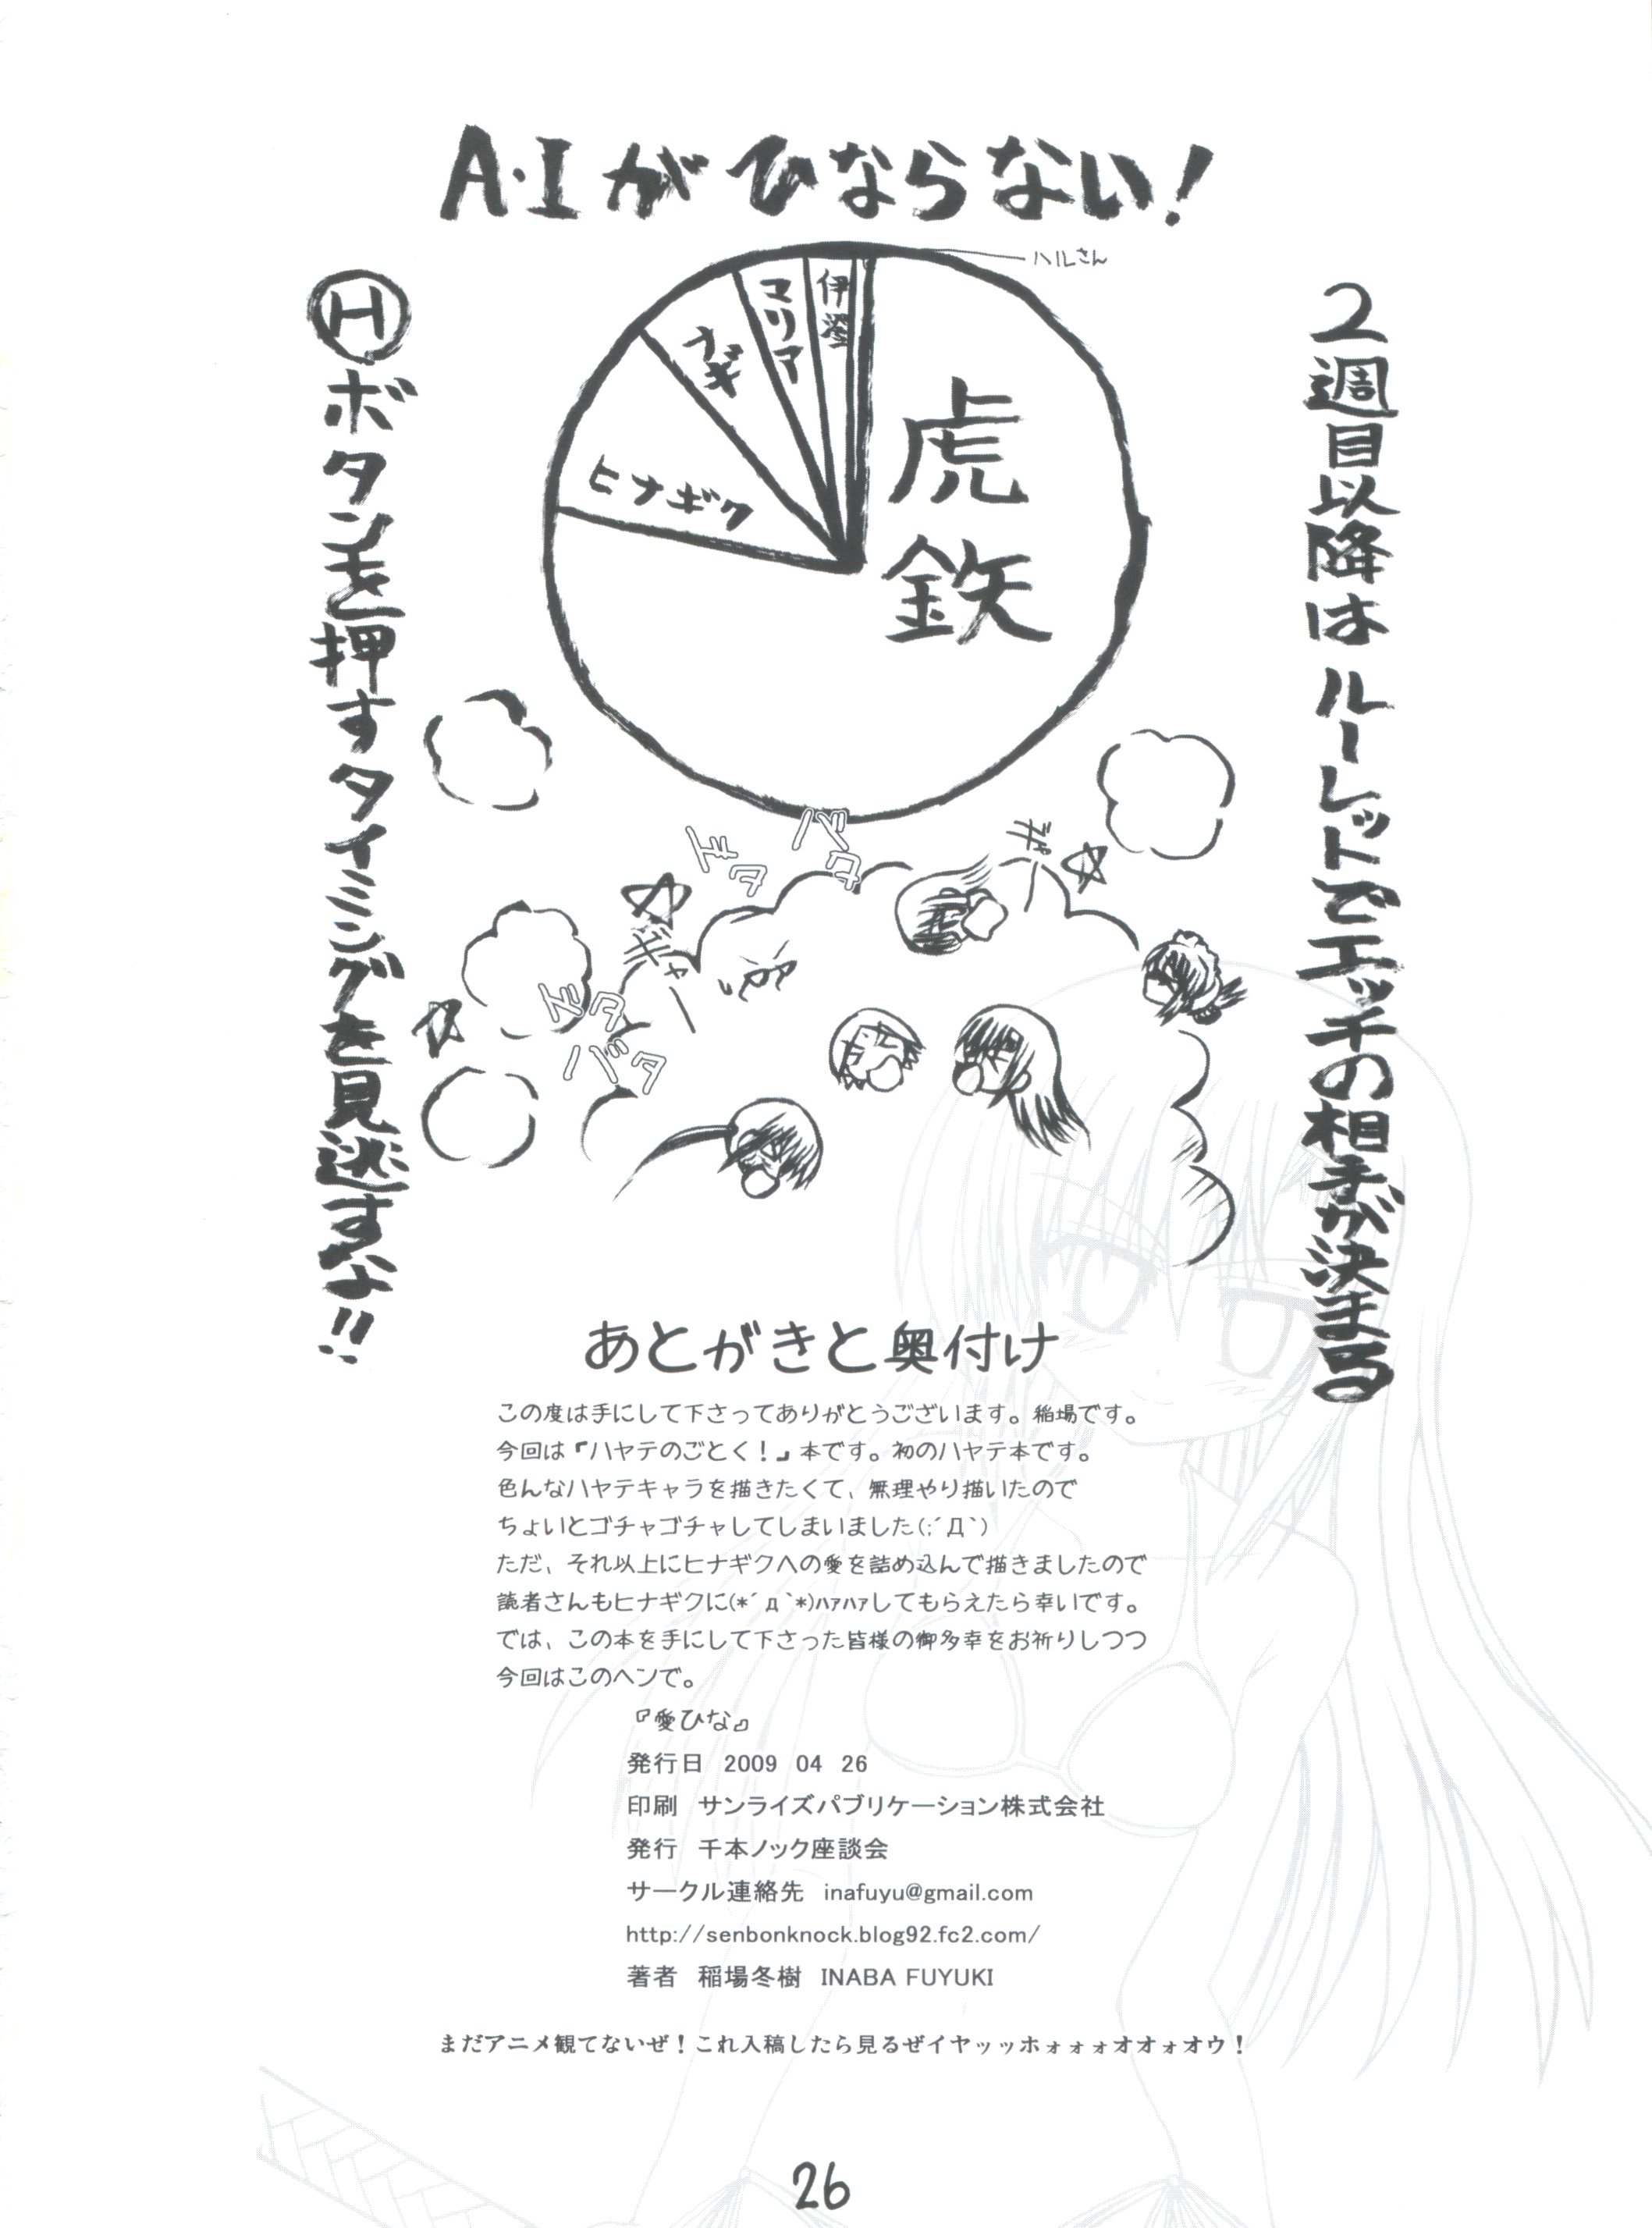 A・Iがひならない!
2週目以降はルーレットでエッチの相手が決まる
Ⓗボタンを押すタイミングを見逃すな!!
ハルさん
伊澄
マリア
ナギ
ヒナギク
虎鉄
ギャー
ギャー
ドタ
バタ
あとがきと奥付け
この度は手にして下さってありがとうございます。稲場です。
今回は『ハヤテのごとく!』本です。初のハヤテ本です。
色んなハヤテキャラを描きたくて、無理やり描いたので
ちょいとゴチャゴチャしてしまいました(;´Д`)
ただ、それ以上にヒナギクへの愛を詰め込んで描きましたので
読者さんもヒナギクに(*´д`*)ﾊｧﾊｧしてもらえたら幸いです。
では、この本を手にして下さった皆様の御多幸をお祈りしつつ
今回はこのヘンで。
『愛ひな』
発行日 2009 04 26
印刷 サンライズパブリケーション株式会社
発行 千本ノック座談会
サークル連絡先 inafuyu@gmail.com
http://senbonknock.blog92.fc2.com/
著者 稲場冬樹 INABA FUYUKI
まだアニメ観てないぜ!これ入稿したら見るぜイヤッッホォォォオオォオウ!
26